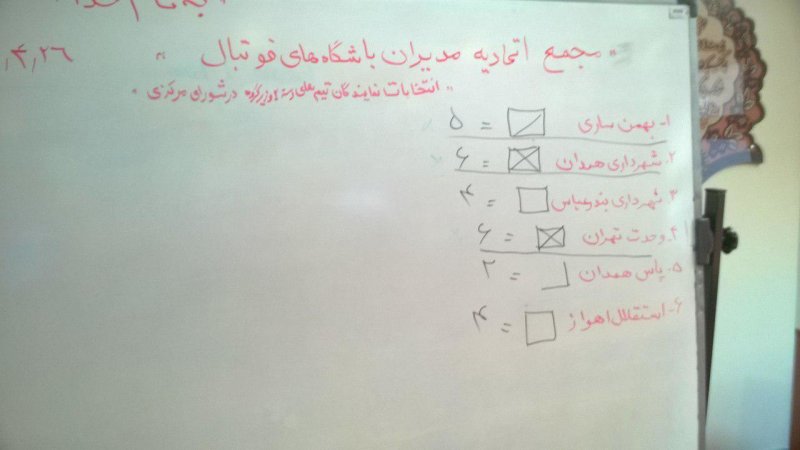 به نام خدا
" مجمع اتحادیه مدیران باشگاه های فوتبال " ۴،۲۶،
" انتخابات نمایندگان تیم های دسته ۱ در شورای مرکزی "
۱- بهمن ساری = ۵
۲- شهرداری همدان = ۶
۳- شهرداری بندرعباس = ۴
۴- وحدت تهران = ۶
۵- پاس همدان = ۲
۶- استقلال اهواز = ۴